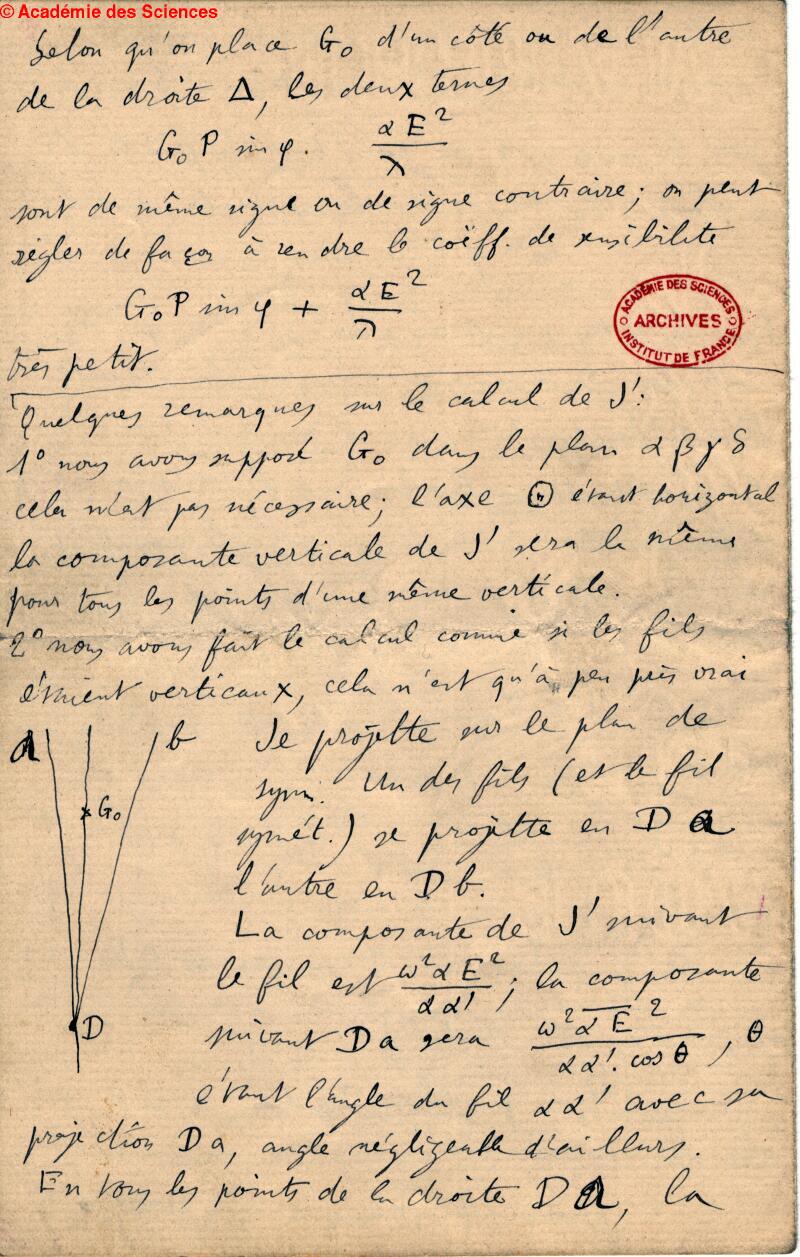 © Académie des Sciences
Selon qu'on place G₀ d'un côté ou de l'autre
de la droite Δ, les deux termes
G₀ P sin φ. αE²/λ
sont de même signe ou de signe contraire; on peut
régler de façon à rendre le coëff. de sensibilité
G₀P sin φ + αE²/λ
très petit.
ACADÉMIE DES SCIENCES
ARCHIVES
INSTITUT DE FRANCE
Quelques remarques sur le calcul de J':
1° nous avons supposé G₀ dans le plan α β γ δ
cela n'est pas nécessaire; l'axe Ⓗ étant horizontal
la composante verticale de J' sera la même
pour tous les points d'une même verticale.
2° nous avons fait le calcul comme si les fils
étaient verticaux, cela n'est qu'à peu près vrai
a b
G₀
D
Je projette sur le plan de
sym. Un des fils (et le fil
symét.) se projette en D a
l'autre en D b.
La composante de J' suivant
le fil est ω²αE²/αα'; la composante
suivant Da sera ω²αE²/αα'. cos θ, θ
étant l'angle du fil αα' avec sa
projection Da, angle négligeable d'ailleurs.
En tous les points de la droite Da, la